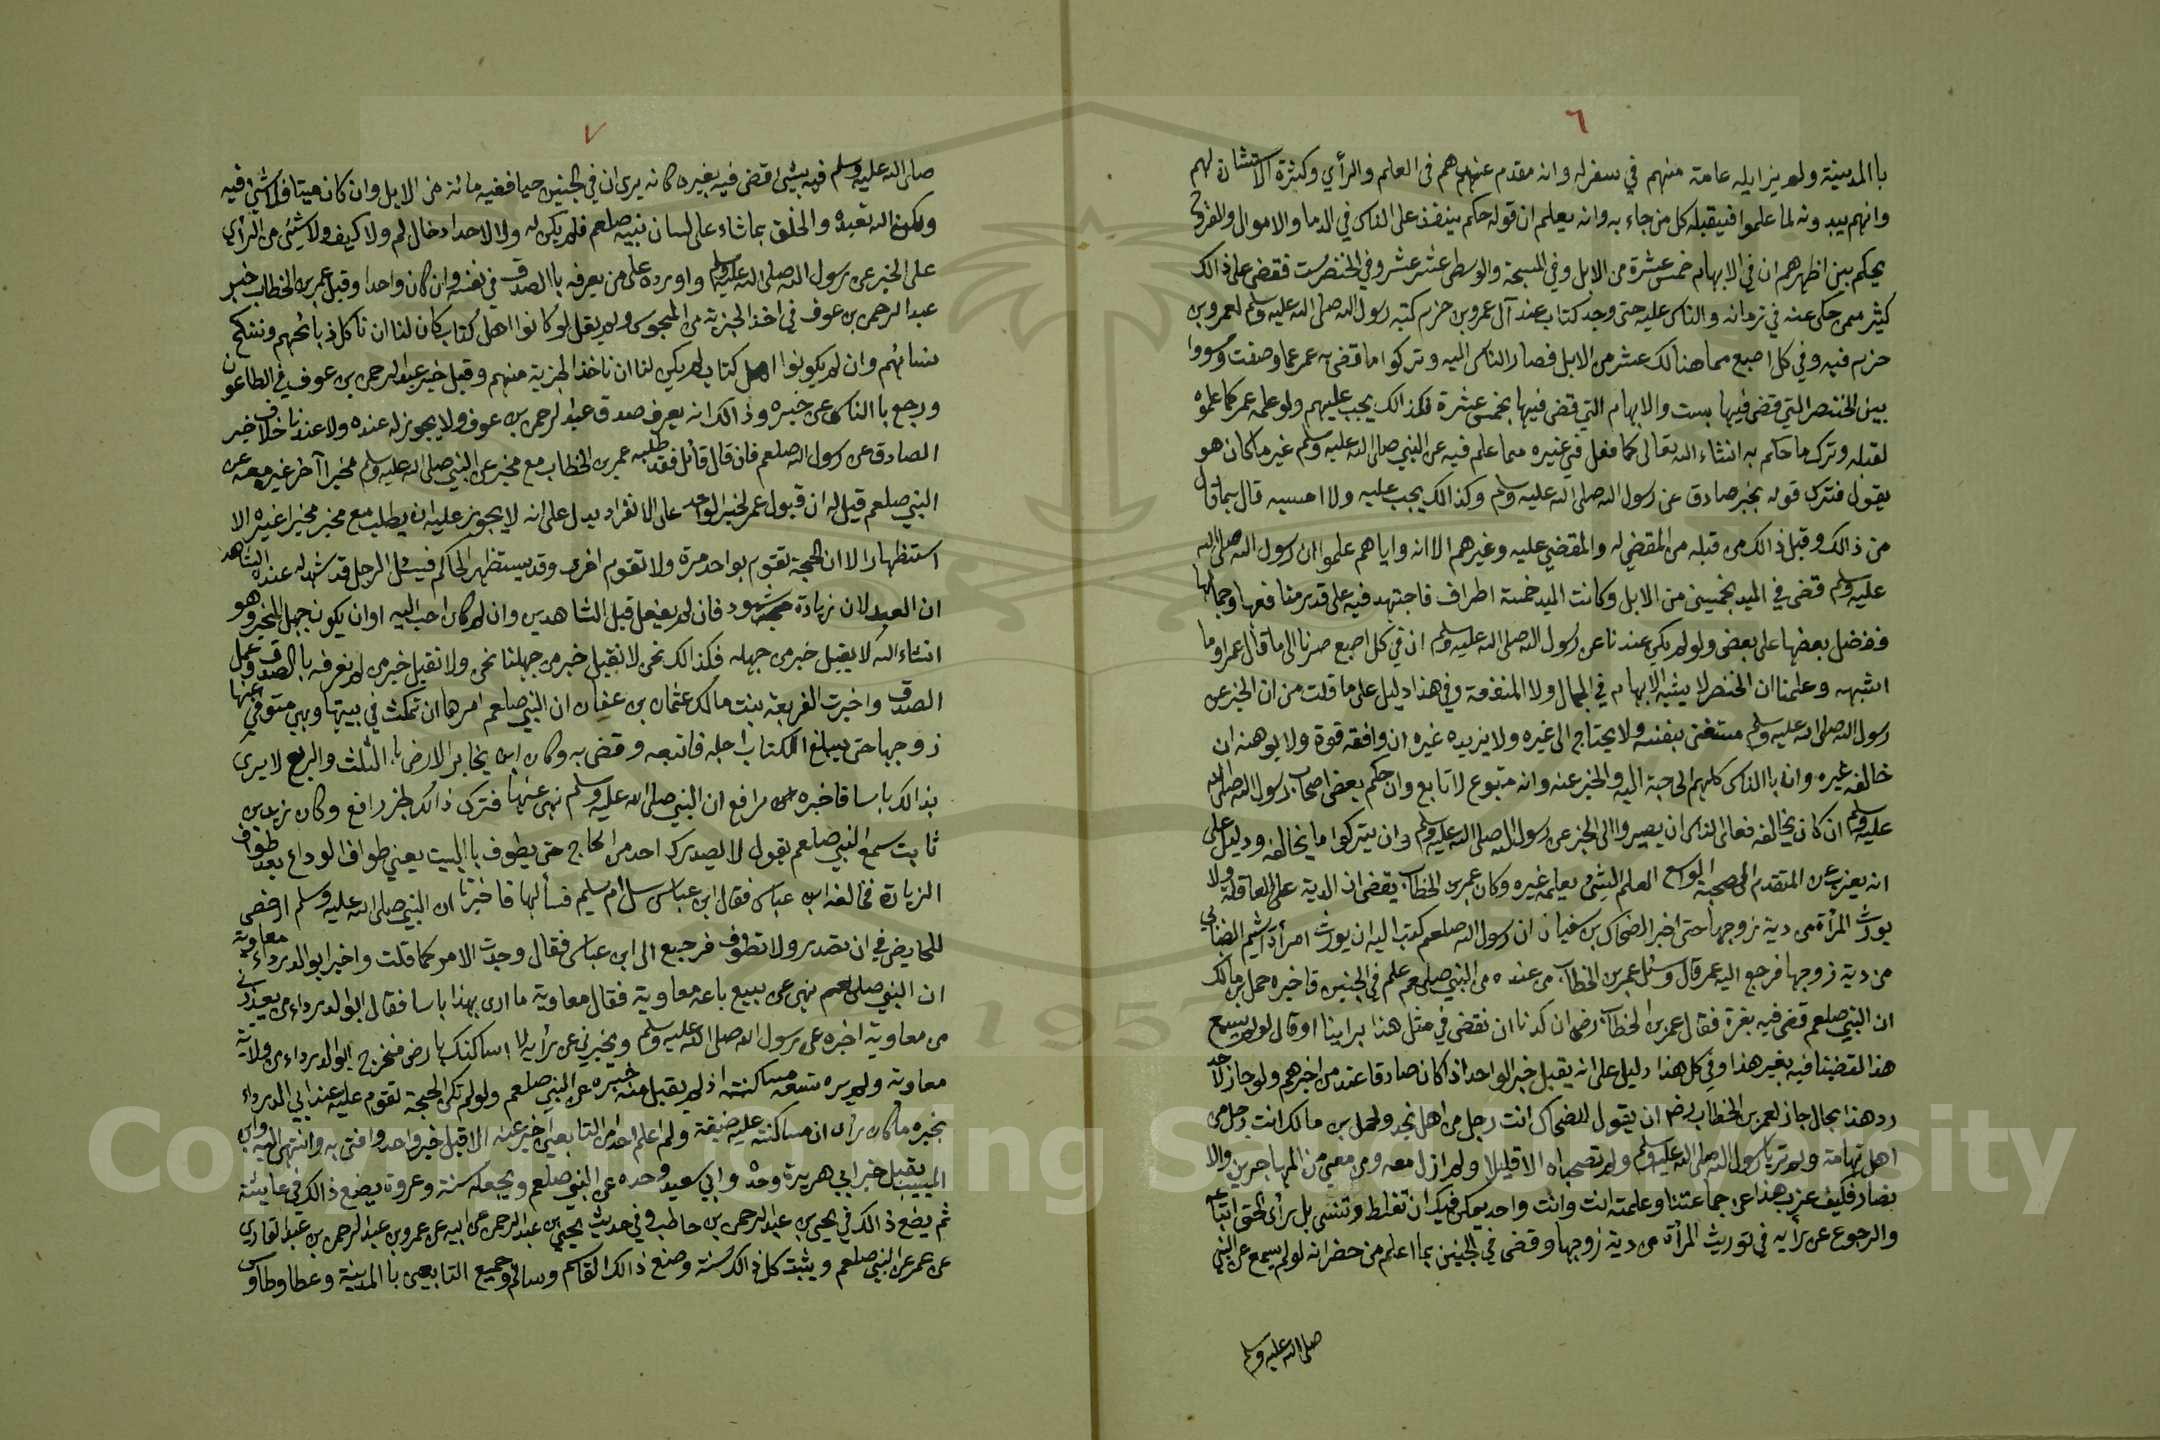 ٦
با المدينة ولم يزايله عامة منهم في سفر له وانه مقدم عندهم هم في العلم والرأي وكثرة الاستشارة لهم
وانهم يبدونه لما علموا فيقبله كل من جاء به وانه يعلم ان قوله حكم ينفذ على الناس في الدما والاموال والفروج
يحكم بين اظهرهم ان في الابهام خمس عشرة من الابل وفي المسبحة والوسطى عشر عشر وفي الخنصر ست فقضى على ذالك
كثير ممن حكى عنه في زمانه والناس عليه حتى وجد كتاب عند آل عمرو بن حزم كتبه رسول الله صلى الله عليه وسلم لعمرو بن
حزم فيه وفي كل اصبع مما هنالك عشر من الابل فصار الناس اليه وتركوا ما قضى به عمر مما وصفت وسووا
بين الخنصر التي قضى فيها بست والابهام التي قضى فيها بخمس عشرة فكذالك يجب عليهم ولو علمه عمر كما علموه
لقبله وترك ما حكم به انشاء الله تعالى كما فعل في غيره مما علم فيه عن النبي صلى الله عليه وسلم غير ما كان هو
يقول فترك قوله بخبر صادق عن رسول الله صلى الله عليه وسلم وكذالك يجب عليه ولا احسبه قال بما قال
من ذالك وقبل ذالك من قبله من المقضي له والمقضي عليه وغيرهم الا انه واياهم علموا ان رسول الله صلى الله
عليه وسلم قضى في اليد بخمسين من الابل وكانت اليد خمسة اطراف فاجتهد فيه على قدر منافعها وجمالها
ففضل بعضها على بعض ولو لم يكن عندنا عن رسول الله صلى الله عليه وسلم ان في كل اصبع صرنا الى ما قال عمر او ما
اشبهه وعلمنا ان الخنصر لا يشبه الابهام في الجمال ولا المنفعة وفي هذا دليل على ما قلت من ان الخبر عن
رسول الله صلى الله عليه وسلم مستغنى بنفسه ولا يحتاج الى غيره ولا يزيده غيره ان وافقه قوة ولا يوهنه ان
خالفه غيره وان با الناس كلهم الحاجة اليه والخبر عنه وانه متبوع لا تابع وان حكم بعض اصحاب رسول الله صلى الله
عليه وسلم ان كان يخالفه فعلى الناس ان يصيروا الى الخبر عن رسول الله صلى الله عليه وسلم وان يتركوا ما يخالفه ودليل على
انه يعزب عن المتقدم الصحبة الواسع العلم الشئ يعلمه غيره وكان عمر بن الخطاب يقضي ان الدية على العاقلة ولا
يورث المرأة من دية زوجها حتى اخبر الضحاك بن سفيان ان رسول الله صلعم كتب اليه ان يورث امرأة اشيم الضبابي
من دية زوجها فرجع اليه عمر قال وسئل عمر بن الخطاب من عنده من النبي صلعم علم في الجنين فاخبره حمل بن مالك
ان النبي صلعم قضى فيه بغرة فقال عمر بن الخطاب رض ان كدنا ان نقضي في مثل هذا براينا او قال لو لم يسمع
هذا لقضينا فيه بغير هذا وفي كل هذا دليل على انه يقبل خبر الواحد اذا كان صادقا عند من اخبرهم ولو جاز لاحد
رد هذا بحال جاز لعمر بن الخطاب رض ان يقول للضحاك انت رجل من اهل نجد ولحمل بن مالك انت رجل من
اهل تهامة ولم تريا رسول الله صلى الله عليه وسلم ولم تصحباه الا قليلا ولم ازل معه ومن معي من المهاجرين والا
نصار فكيف عزب هذا عن جماعتنا وعلمته انت وانت واحد يمكن فيك ان تغلط وتنسى بل رأى الحق اتباعه
والرجوع عن رأيه في توريث المرأة من دية زوجها وقضى في الجنين بما اعلم من حضر انه لو لم يسمع عن النبي
صلى الله عليه وسلم
٧
صلى الله عليه وسلم فيه بشئ قضى فيه بغيره كانه يرى ان في الجنين حيا ففيه مائة من الابل وان كان ميتا فلا شئ فيه
ولكن الله تعبده والخلق بما شاء على لسان نبيه صلعم فلم يكن له ولا لاحد ادخال لم ولا كيف ولا شئ من الرأي
على الخبر عن رسول الله صلى الله عليه وسلم ولو رده على من يعرفه با الصدق في نفسه وان كان واحدا وقبل عمر بن الخطاب خبر
عبد الرحمن بن عوف في اخذ الجزية من المجوس ولم يقل لو كانوا اهل كتاب كان لنا ان ناكل ذبائحهم وننكح
نسائهم وان لم يكونوا اهل كتاب لم يكن لنا ان ناخذ الجزية منهم وقبل خبر عبد الرحمن بن عوف في الطاعون
ورجع با الناس عن خبره وذالك انه يعرف صدق عبد الرحمن بن عوف ولا يجوز له عنده ولا عندنا خلاف خبر
الصادق عن رسول الله صلعم فان قال قائل فقد طلب عمر بن الخطاب مع مخبر عن النبي صلى الله عليه وسلم مخبرا آخر غيره معه عن
النبي صلعم قيل له ان قبول عمر لخبر الواحد على الانفراد يدل على انه لا يجوز عليه ان يطلب مع مخبر مخبرا غيره الا
استظهارا لا ان الحجة تقوم بواحد مرة ولا تقوم اخرى وقد يستظهر الحاكم فيسئل الرجل قد شهد له عنده الشاهد
ان العدلان زيادة شهود فان لم يفعل قبل الشاهدين وان لم كان احب اليه او ان يكون جهل المخبر وهو
انشاء الله لا يقبل خبر من جهله فكذالك نحن لا نقبل خبر من جهلنا نحن ولا نقبل خبر من لم نعرفه با الصدق وعمل
الصدق واخبرت الفريعة بنت مالك عثمان بن عفان ان النبي صلعم امرها ان تمكث في بيتها وهي متوفى عنها
زوجها حتى يبلغ الكتاب اجله فاتبعه وقضى به وكان ابن يخابر الارض با الثلث والربع لا يرى
بذالك باسا فاخبره مرافع ان النبي صلى الله عليه وسلم نهى عنها فترك ذالك لخبر رافع وكان زيد بن
ثابت سمع النبي صلعم يقول لا يصدرك احد من الحاج حتى يطوف با البيت يعني طواف الوداع بعد طواف
الزيارة فخالفه ابن عباس فقال ابن عباس سل ام سليم فسألها فاخبرتا ان النبي صلى الله عليه وسلم ارخص
للحايض في ان تصدر ولا تطوف فرجع الى ابن عباس فقال وجدت الامر كما قلت واخبر ابو الدرداء معاوية
ان النبي صلعم نهى عن بيع باعه معاوية فقال معاوية ما ارى بهذا باسا فقال ابو الدرداء من يعذرني
من معاوية اخبره عن رسول الله صلى الله عليه وسلم ويخبرني عن رأيه لا اساكنك بارض فخرج ابو الدرداء من ولاية
معاوية ولم يره تسعه مساكنته اذ لم يقبل منه خبره عن النبي صلعم ولو لم تكن الحجة تقوم عليه عند ابي الدرداء
بخبره ما كان رأى ان مساكنته عليه ضيقة ولم اعلم احدا من التابعين اخبر عنه الا قبل خبر واحد وافتى به وانتهى اليه وابن
المسيب يقبل خبر ابي هريرة وحده وابي سعيد وحده عن النبي صلعم ويجعله سنة وعروة يصنع ذالك في عايشة
ثم يصنع ذالك في يحيى بن عبد الرحمن بن حاطب وفي حديث يحيى بن عبد الرحمن عن ابيه عن عمر وبن عبد الرحمن بن عبد القاري
عن عمر عن النبي صلعم ويثبت كل ذالك سنة وصنع ذالك القاسم وسالم وجميع التابعين با المدينة وعطا وطاوس
Copyright © King Saud University
1957